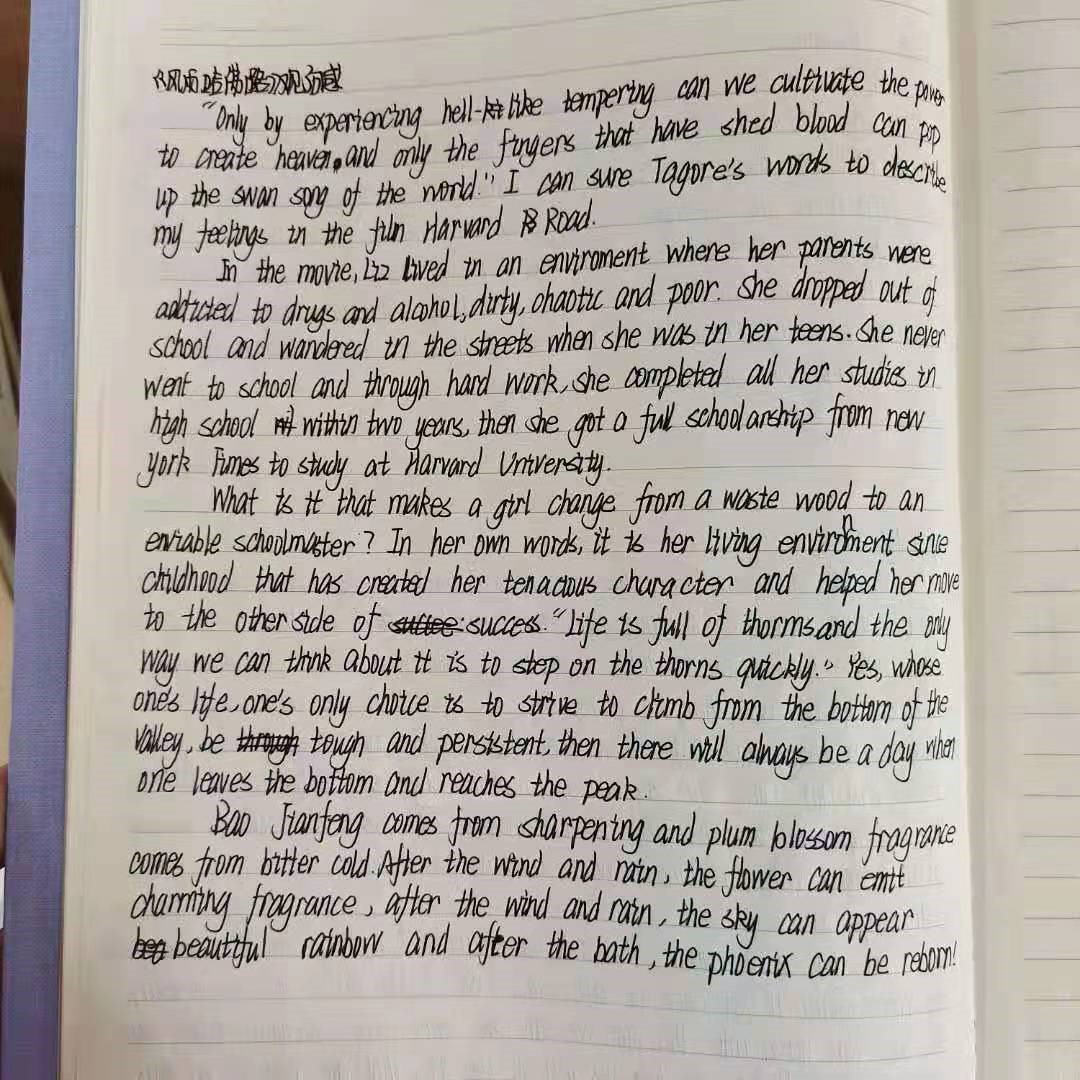 《风雨哈佛路》观后感
"Only by experiencing hell-like tempering can we cultivate the power
to create heaven, and only the fingers that have shed blood can pop
up the swan song of the world." I can sure Tagore's words to describe
my feelings in the film Harvard Road.
In the movie, Liz lived in an enviroment where her parents were
addicted to drugs and alcohol, dirty, chaotic and poor. She dropped out of
school and wandered in the streets when she was in her teens. She never
went to school and through hard work, she completed all her studies in
high school within two years, then she got a full schoolarship from new
york Times to study at Harvard University.
What is it that makes a girl change from a waste wood to an
enviable schoolmaster? In her own words, it is her living environment since
childhood that has created her tenacious character and helped her move
to the other side of success. "Life is full of thorms and the only
way we can think about it is to step on the thorns quickly." Yes, whose
one's life, one's only choice is to strive to climb from the bottom of the
valley, be tough and persistent, then there will always be a day when
one leaves the bottom and reaches the peak.
Bao Jianfeng comes from sharpening and plum blossom fragrance
comes from bitter cold. After the wind and rain, the flower can emit
charming fragrance, after the wind and rain, the sky can appear
beautiful rainbow and after the bath, the phoenix can be reborn!